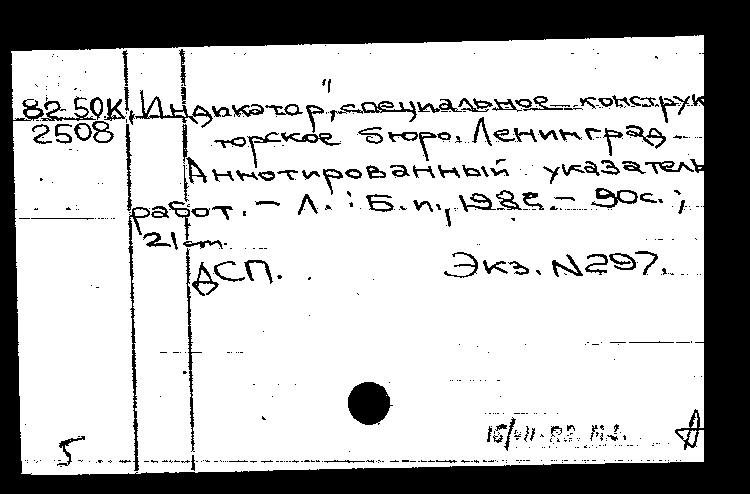 82 50К „Индикатор", специальное конструк
2508 торское бюро. Ленинград.
Аннотированный указатель
работ. - Л. : Б.и., 1982. - 90с. ;
21 cm.
ДСП. Экз. N297.
5